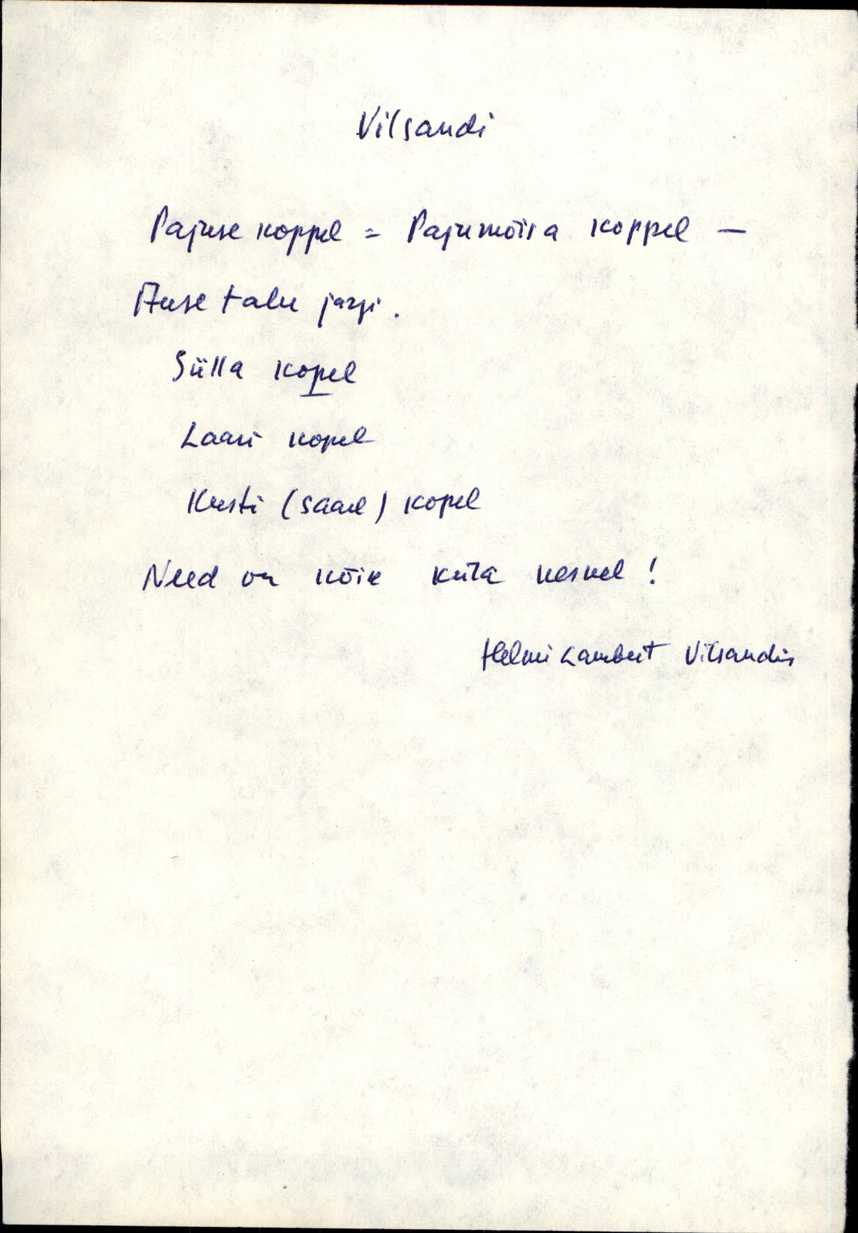 Vilsandi
Pajuse koppel = Pajumõisa koppel —
talu järgi.
Sülla kopel
Laasi kopel
Kusti (saare) kopel
Need on kõik küla keskel!
Helmi Lambert Vilsandis